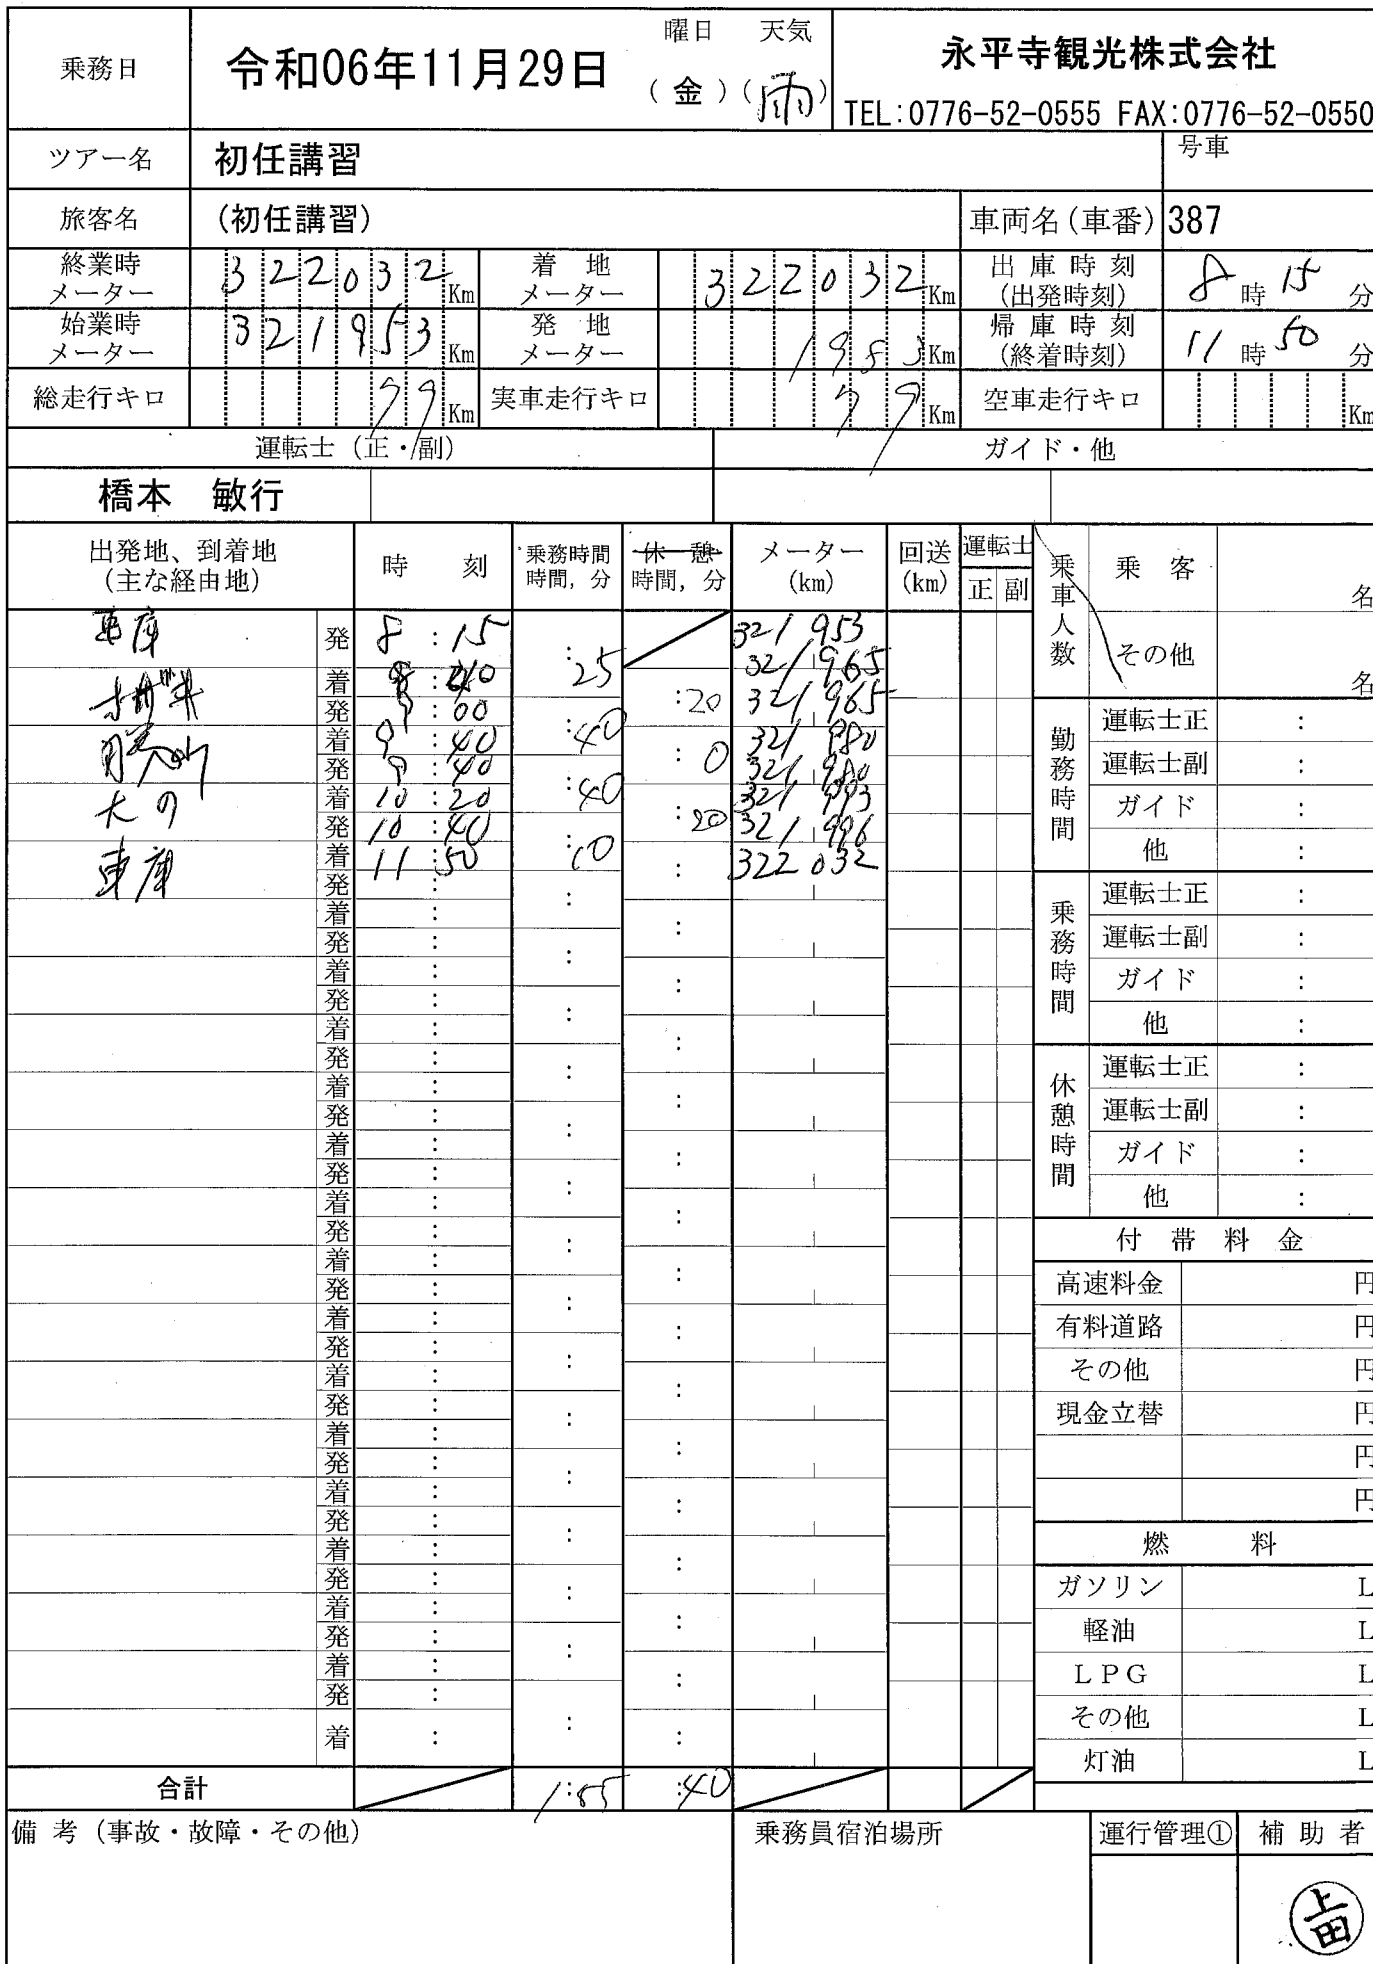 乗務日 令和06年11月29日 曜日 天気 (金) (雨) 永平寺観光株式会社
TEL:0776-52-0555 FAX:0776-52-0550
ツアー名 初任講習 号車
旅客名 (初任講習) 車両名(車番) 387
終業時メーター 322032 Km 着地メーター 322032 Km 出庫時刻(出発時刻) 8時15分
始業時メーター 321953 Km 発地メーター Km 帰庫時刻(終着時刻) 11時50分
総走行キロ 79 Km 実車走行キロ 79 Km 空車走行キロ Km
運転士(正・副) ガイド・他
橋本 敏行
出発地、到着地(主な経由地) 時刻 乗務時間 時間,分 休憩 時間,分 メーター(km) 回送(km) 運転士 正 副
車庫 発 8:15 321 953
着 :40 :25 321 965
発 9:00 :20 321 965
勝山 着 9:40 :40 321 980
発 9:40 :0 321 980
大の 着 10:20 :40 321 993
発 10:40 :20 321 996
車庫 着 11:50 :10 322 032
発 : :
着 : :
発 : :
着 : :
発 : :
着 : :
発 : :
着 : :
発 : :
着 : :
発 : :
着 : :
発 : :
着 : :
発 : :
着 : :
発 : :
着 : :
発 : :
着 : :
発 : :
着 : :
発 : :
着 : :
発 : :
着 : :
発 : :
着 : : :
合計 :40
乗車人数 乗客 名
その他 名
勤務時間 運転士正 :
運転士副 :
ガイド :
他 :
乗務時間 運転士正 :
運転士副 :
ガイド :
他 :
休憩時間 運転士正 :
運転士副 :
ガイド :
他 :
付帯料金
高速料金 円
有料道路 円
その他 円
現金立替 円
円
円
燃料
ガソリン L
軽油 L
LPG L
その他 L
灯油 L
備考(事故・故障・その他) 乗務員宿泊場所 運行管理① 補助者
上田